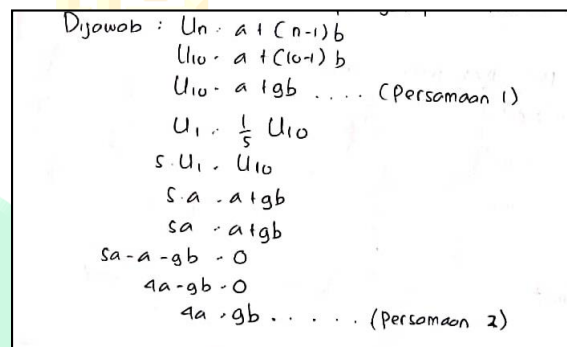 Dijawab : Un = a + (n-1)b
U10 = a + (10-1) b
U10 = a + 9b .... (Persamaan 1)
U1 = 1/5 U10
5. U1 = U10
5. a = a + 9b
5a = a + 9b
5a - a - 9b = 0
4a - 9b = 0
4a = 9b ..... (Persamaan 2)